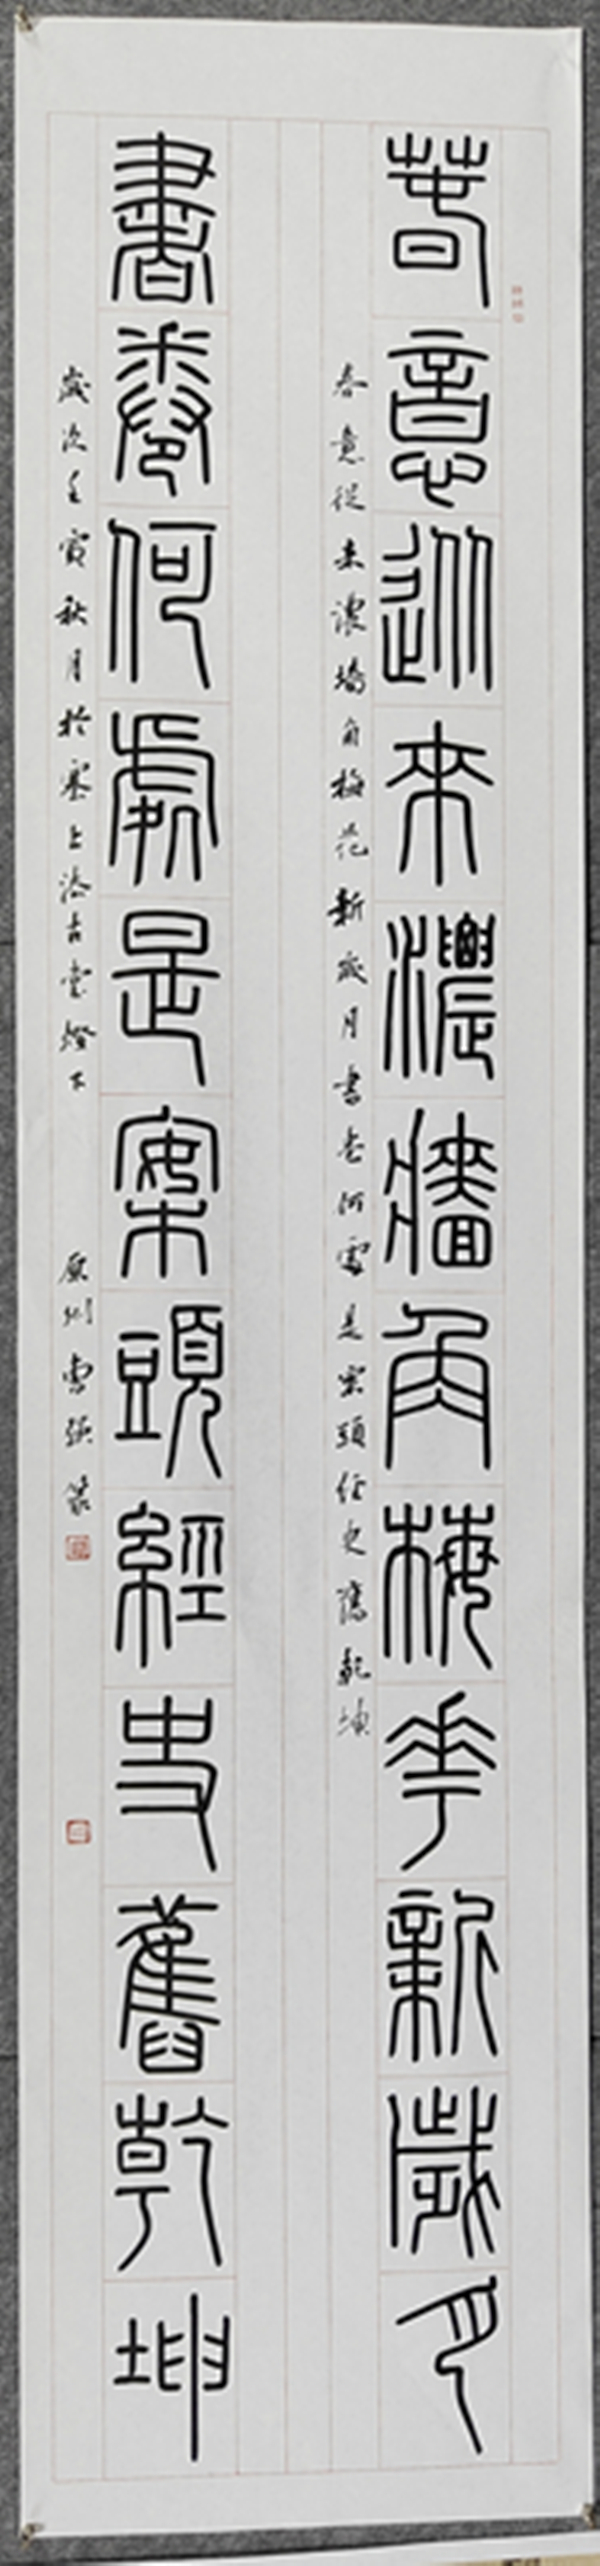 春意從來濃牆角梅華新歲月
春意從來濃墻角梅花新歲月書卷何處是案頭經史舊乾坤
書卷何處是案頭經史舊乾坤
歲次壬寅秋月於塞上古堂燈下 原州曹强篆